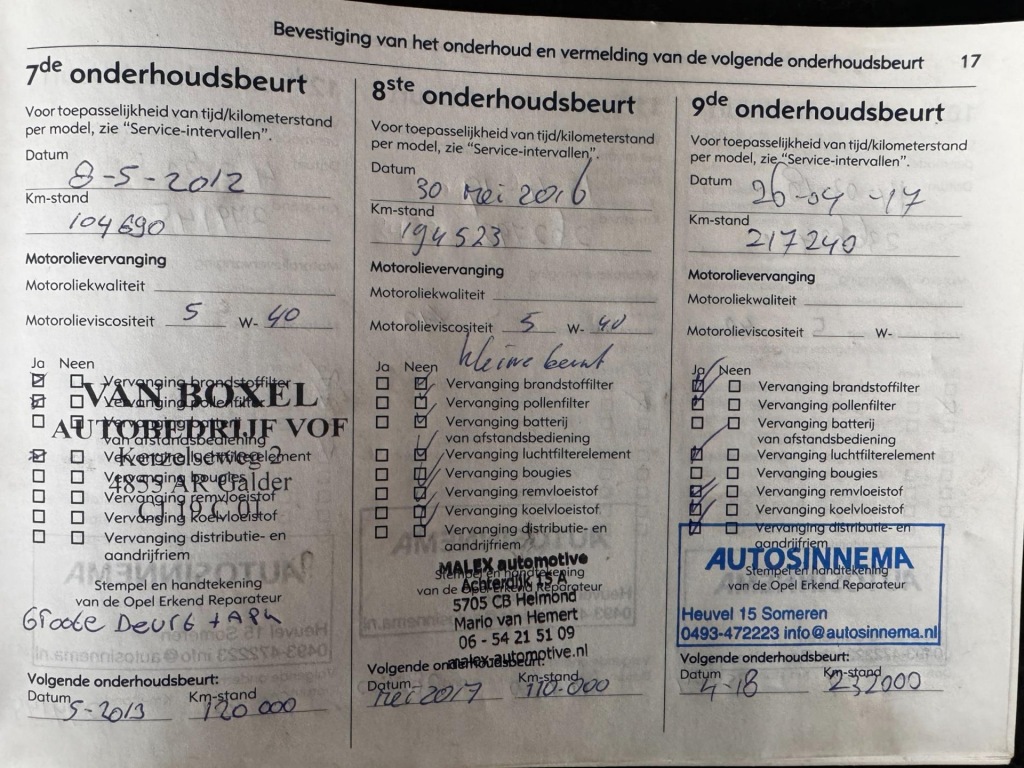 Bevestiging van het onderhoud en vermelding van de volgende onderhoudsbeurt 17
7de onderhoudsbeurt
Voor toepasselijkheid van tijd/kilometerstand
per model, zie "Service-intervallen".
Datum
8-5-2012
Km-stand
104690
Motorolievervanging
Motoroliekwaliteit
Motorolieviscositeit 5 W- 40
Ja Neen
Vervanging brandstoffilter
Vervanging pollenfilter
Vervanging batterij
van afstandsbediening
Vervanging luchtfilterelement
Vervanging bougies
Vervanging remvloeistof
Vervanging koelvloeistof
Vervanging distributie- en
aandrijfriem
VAN BOXEL
AUTOBEDRIJF VOF
Kerzelseweg 2
4855 AR Galder
Stempel en handtekening
van de Opel Erkend Reparateur
Groote Beurt + APK
Volgende onderhoudsbeurt:
Datum Km-stand
5-2013 120 000
8ste onderhoudsbeurt
Voor toepasselijkheid van tijd/kilometerstand
per model, zie "Service-intervallen".
Datum
30 Mei 2016
Km-stand
194523
Motorolievervanging
Motoroliekwaliteit
Motorolieviscositeit 5 W- 40
kleine beurt
Ja Neen
Vervanging brandstoffilter
Vervanging pollenfilter
Vervanging batterij
van afstandsbediening
Vervanging luchtfilterelement
Vervanging bougies
Vervanging remvloeistof
Vervanging koelvloeistof
Vervanging distributie- en
aandrijfriem
MALEX automotive
Stempel en handtekening
Achterdijk 15 A
van de Opel Erkend Reparateur
5705 CB Helmond
Mario van Hemert
06 - 54 21 51 09
malex-automotive.nl
Volgende onderhoudsbeurt:
Datum Km-stand
Mei 2017 110-000
9de onderhoudsbeurt
Voor toepasselijkheid van tijd/kilometerstand
per model, zie "Service-intervallen".
Datum
26-04-17
Km-stand
217240
Motorolievervanging
Motoroliekwaliteit
Motorolieviscositeit W-
Ja Neen
Vervanging brandstoffilter
Vervanging pollenfilter
Vervanging batterij
van afstandsbediening
Vervanging luchtfilterelement
Vervanging bougies
Vervanging remvloeistof
Vervanging koelvloeistof
Vervanging distributie- en
aandrijfriem
AUTOSINNEMA
Stempel en handtekening
van de Opel Erkend Reparateur
Heuvel 15 Someren
0493-472223 info@autosinnema.nl
Volgende onderhoudsbeurt:
Datum Km-stand
4-18 232000